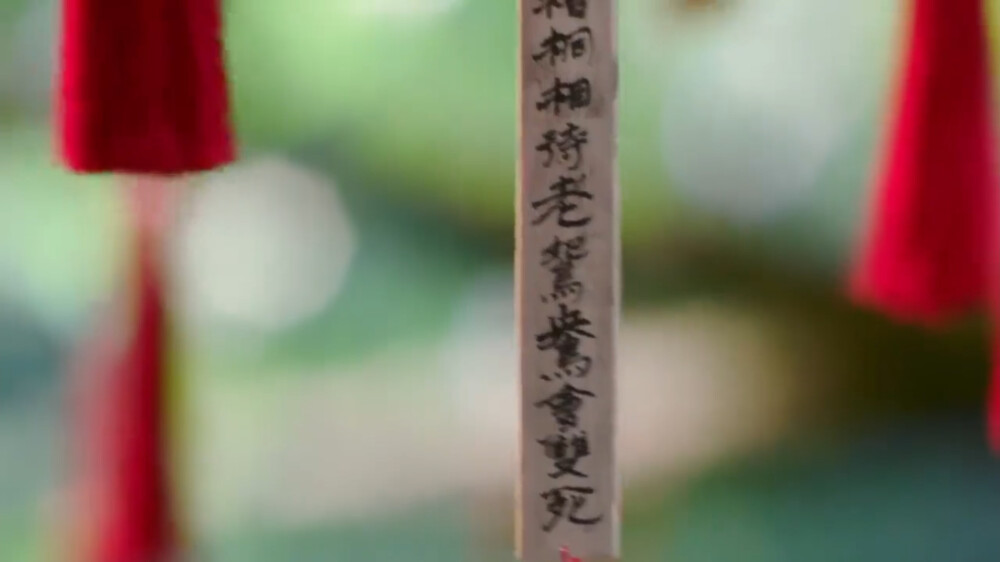 梧桐相待老鴛鴦會雙死